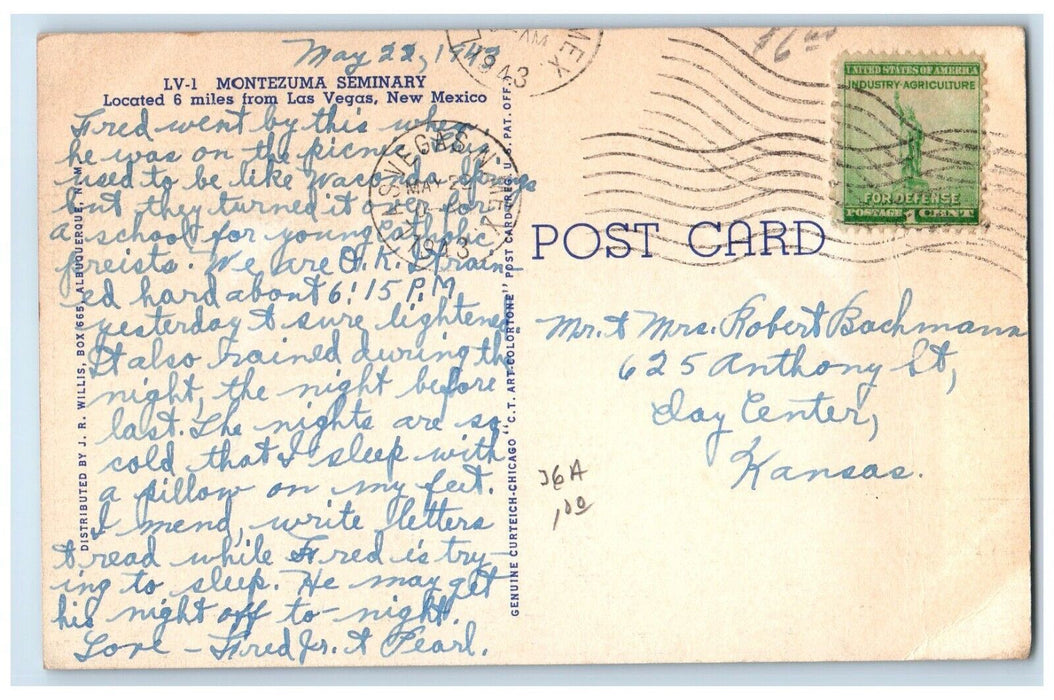 May 22, 1943
LV-1 MONTEZUMA SEMINARY
Located 6 miles from Las Vegas, New Mexico
Fred went by this when
he was on the picnic. This
used to be like Waconda Springs
but they turned it over for
a school for young Catholic
preists. We are O.K. It rain-
ed hard about 6:15 P.M.
yesterday & sure lightened.
It also rained during the
night, the night before
last. The nights are so
cold that I sleep with
a pillow on my feet.
I mend, write letters
& read while Fred is try-
ing to sleep. He may get
his night off to-night.
Love - Fred Jr. & Pearl.
DISTRIBUTED BY J. R. WILLIS, BOX 665, ALBUQUERQUE, N. M.
GENUINE CURTEICH-CHICAGO "C.T. ART-COLORTONE" POST CARD (REG. U.S. PAT. OFF.)
MEX.
AM
1943
LAS VEGAS N. MEX.
MAY
1943
$6.00
UNITED STATES OF AMERICA
INDUSTRY-AGRICULTURE
FOR DEFENSE
POSTAGE 1 CENT
POST CARD
Mr. & Mrs. Robert Bachmann
625 Anthony St,
Clay Center,
Kansas.
J6A
1.00